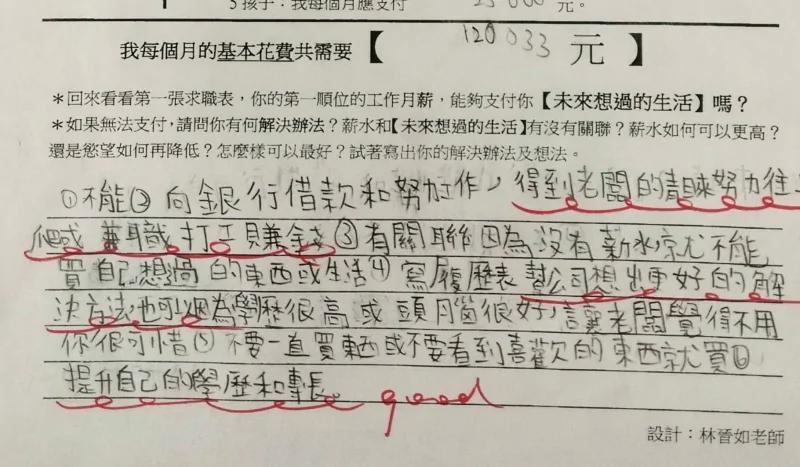 5 孩子：我每個月應支付 25000 元。
我每個月的基本花費共需要【 120033 元
＊回來看看第一張求職表，你的第一順位的工作月薪，能夠支付你【未來想過的生活】嗎？
＊如果無法支付，請問你有何解決辦法？薪水和【未來想過的生活】有沒有關聯？薪水如何可以更高？
還是慾望如何再降低？怎麼樣可以最好？試著寫出你的解決辦法及想法。
①不能②向銀行借款和努力工作，得到老闆的青睞努力往上
爬或兼職打工賺錢③有關聯因為沒有薪水就不能
買自己想過的東西或生活④寫履歷表幫公司想出更好的解
決方法也可以因為學歷很高或頭腦很好，讓老闆覺得不用
你很可惜⑤不要一直買東西或不要看到喜歡的東西就買⑥
提升自己的學歷和專長。 good
設計：林晉如老師